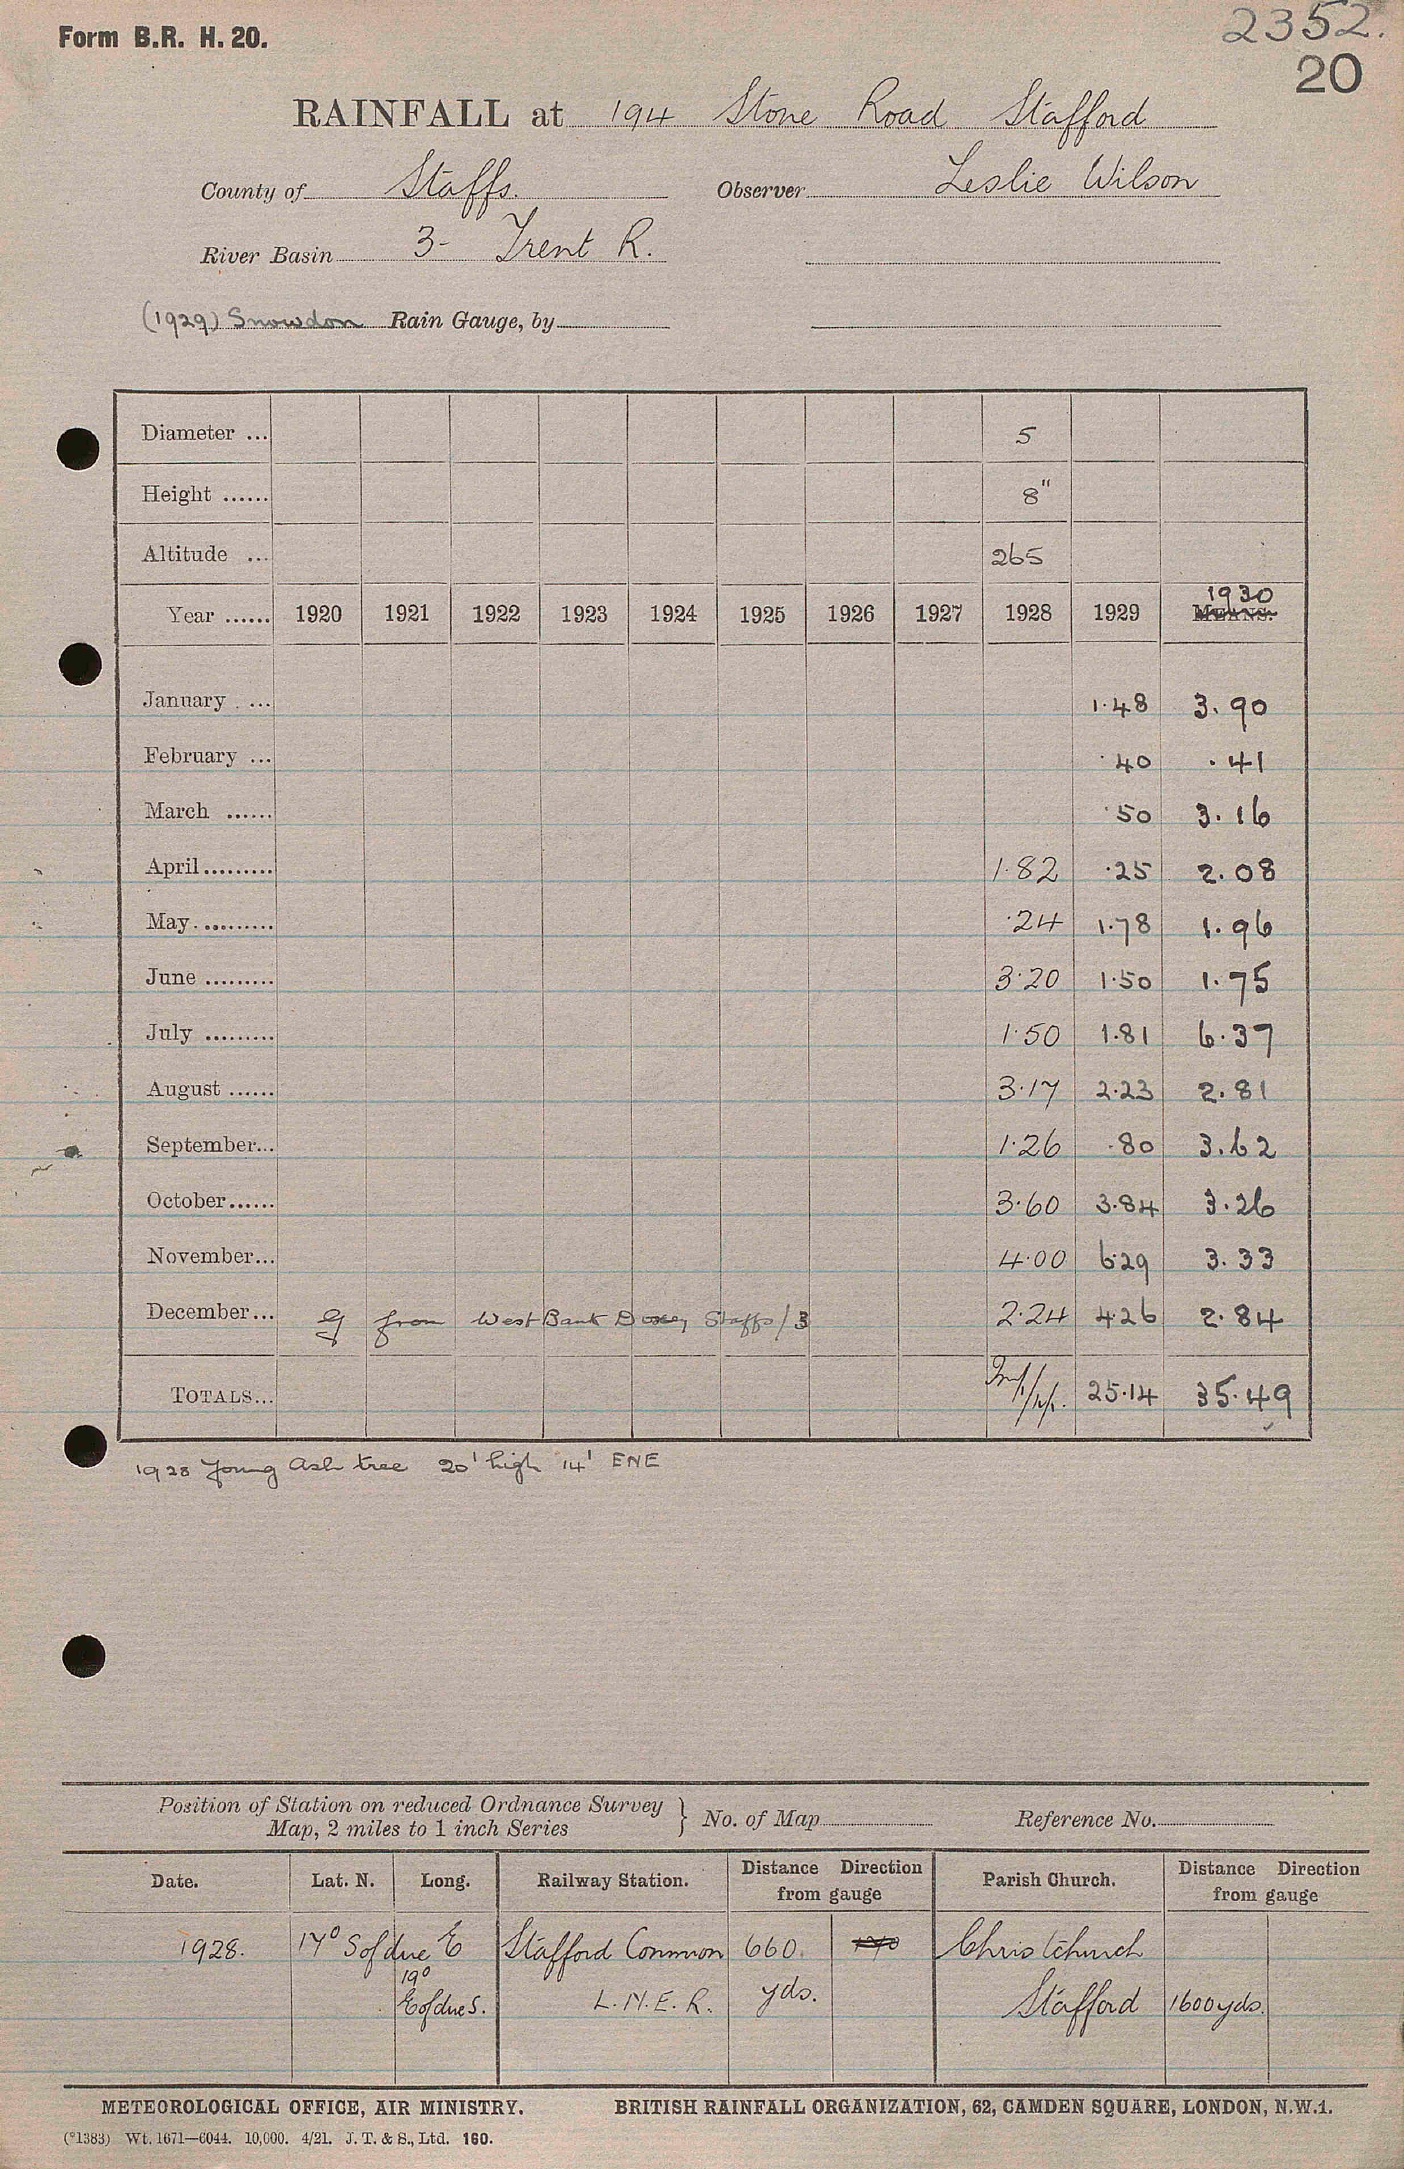 Form B.R. H. 20.
2352.
20
RAINFALL at 194 Stone Road Stafford
County of Staffs. Observer Leslie Wilson
River Basin 3- Trent R.
(1929) Snowdon Rain Gauge, by
Diameter ... 5
Height ...... 8"
Altitude ... 265
1930
Year ...... 1920 1921 1922 1923 1924 1925 1926 1927 1928 1929 MEANS.
January ... 1.48 3.90
February ... .40 .41
March ...... .50 3.16
April ......... 1.82 .25 2.08
May .......... .24 1.78 1.96
June ......... 3.20 1.50 1.75
July ......... 1.50 1.81 6.37
August ...... 3.17 2.23 2.81
September... 1.26 .80 3.62
October...... 3.60 3.84 3.26
November... 4.00 6.29 3.33
December... from West Bank Doxey Staffs/3 2.24 4.26 2.84
TOTALS... 25.14 35.49
1928 Young Ash tree 20' high 14' ENE
Position of Station on reduced Ordnance Survey
Map, 2 miles to 1 inch Series } No. of Map Reference No.
Date. Lat. N. Long. Railway Station. Distance Direction from gauge Parish Church. Distance Direction from gauge
1928. 17° S of due E Stafford Common 660 Christchurch
19°
E of due S. L.N.E.R. yds. Stafford 1600 yds.
METEOROLOGICAL OFFICE, AIR MINISTRY. BRITISH RAINFALL ORGANIZATION, 62, CAMDEN SQUARE, LONDON, N.W.1.
(*1383) Wt. 1671—6044. 10,000. 4/21. J. T. & S., Ltd. 160.